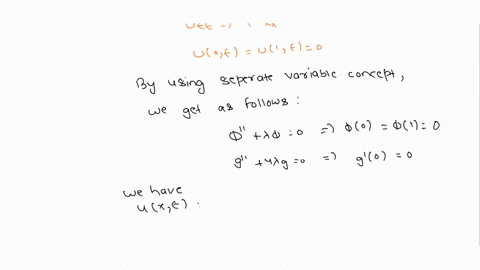 U(0,t) = U(1,t) = 0
By using seperate variable concept,
we get as follows :
Φ'' + λΦ = 0 => Φ(0) = Φ(1) = 0
g'' + 4λg = 0 => g'(0) = 0
we have
u(x,t) :